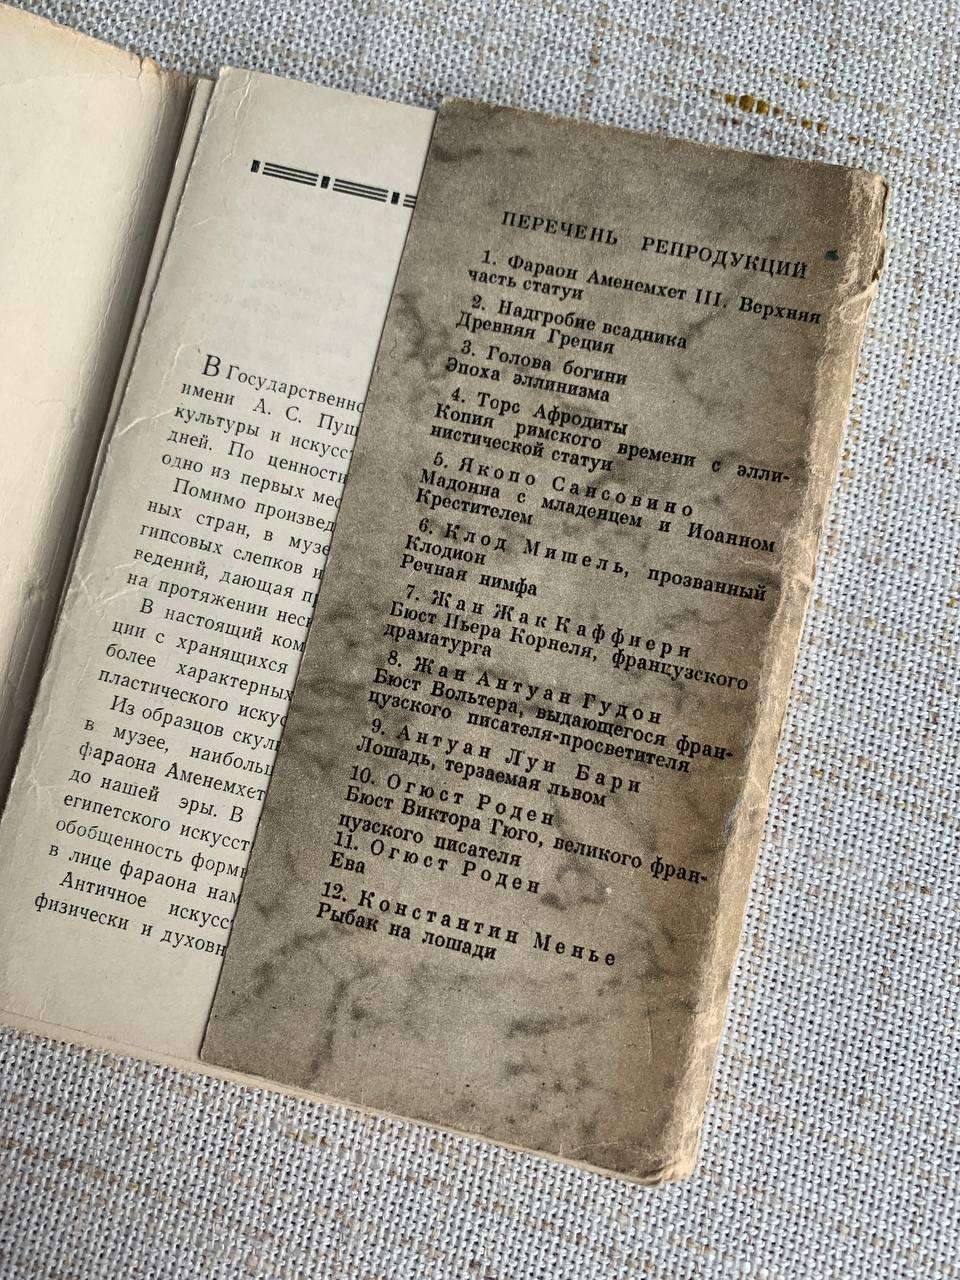 В Государственно
имени А. С. Пуш
культуры и искусс
дней. По ценности
одно из первых мес
Помимо произвед
ных стран, в музе
гипсовых слепков и
ведений, дающая п
на протяжении неск
В настоящий ком
ции с хранящихся
более характерных
пластического искус
Из образцов скул
в музее, наиболь
фараона Аменемхет
до нашей эры. В
египетского искусст
обобщенность форм
в лице фараона нам
Античное искусс
физически и духовн
ПЕРЕЧЕНЬ РЕПРОДУКЦИЙ
1. Фараон Аменемхет III. Верхняя
часть статуи
2. Надгробие всадника
Древняя Греция
3. Голова богини
Эпоха эллинизма
4. Торс Афродиты
Копия римского времени с элли-
нистической статуи
5. Якопо Сансовино
Мадонна с младенцем и Иоанном
Крестителем
6. Клод Мишель, прозванный
Клодион
Речная нимфа
7. Жан Жак Каффиери
Бюст Пьера Корнеля, французского
драматурга
8. Жан Антуан Гудон
Бюст Вольтера, выдающегося фран-
цузского писателя-просветителя
9. Антуан Луи Бари
Лошадь, терзаемая львом
10. Огюст Роден
Бюст Виктора Гюго, великого фран-
цузского писателя
11. Огюст Роден
Ева
12. Константин Менье
Рыбак на лошади